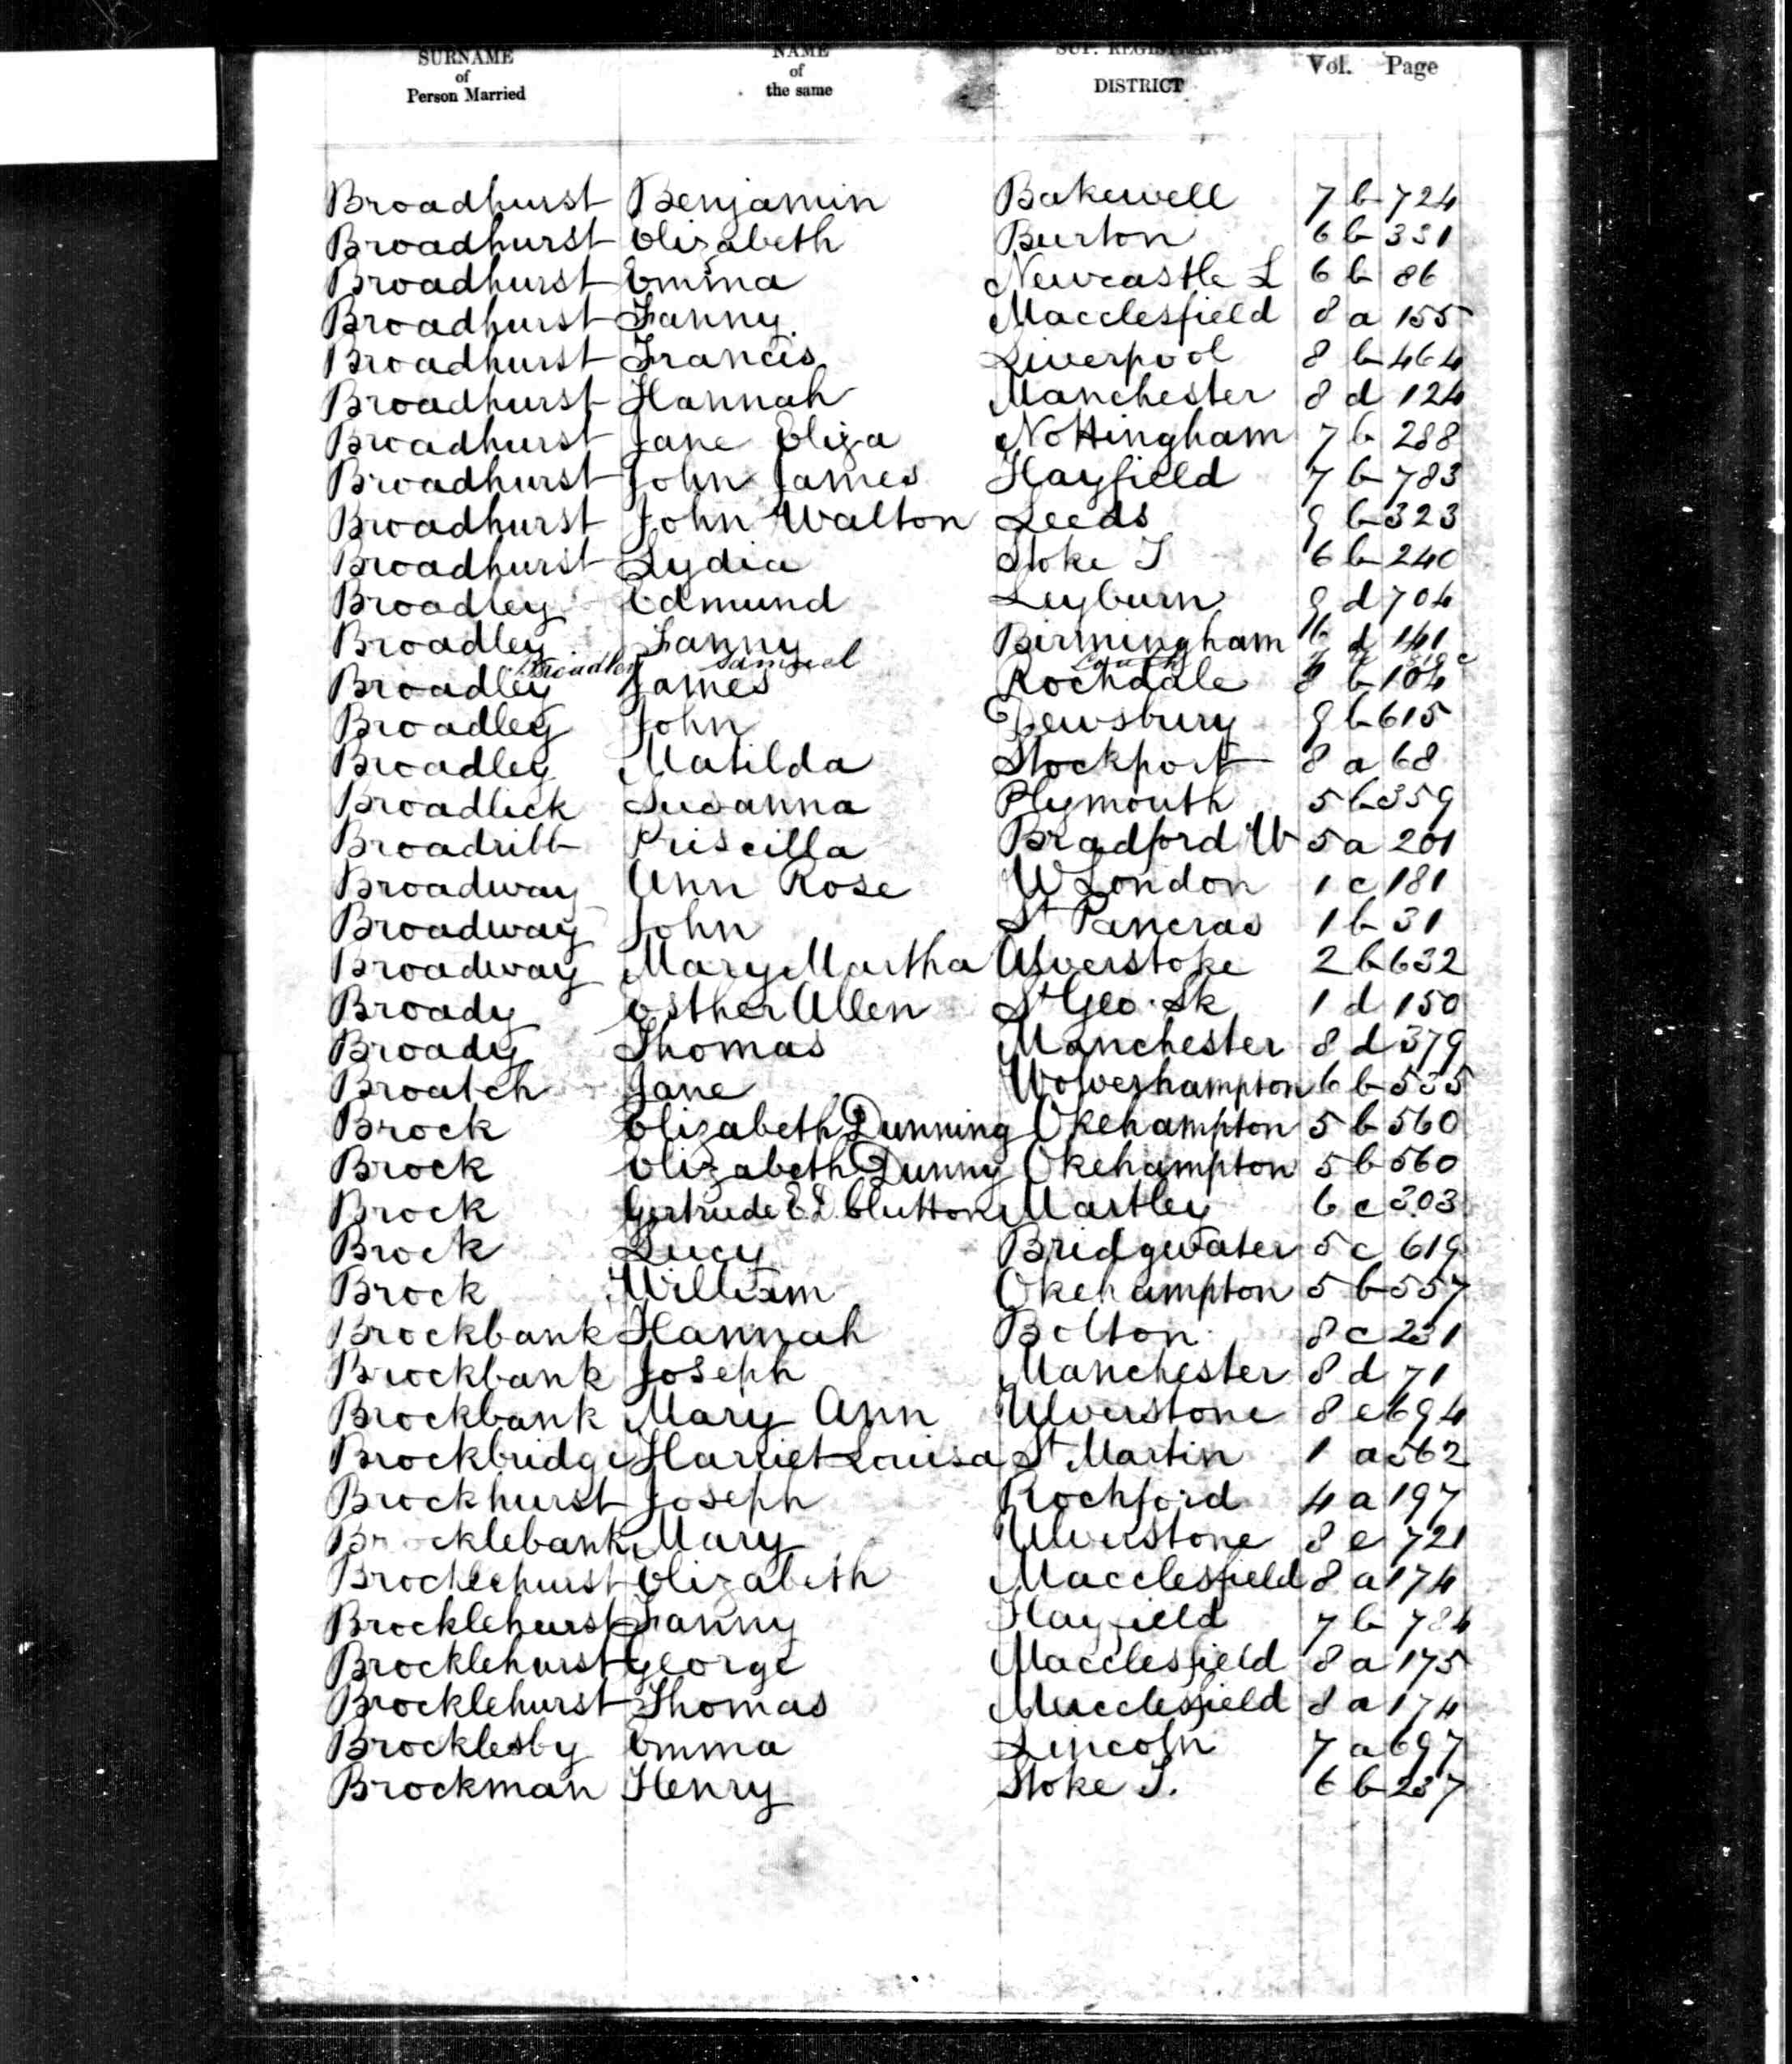 SURNAME of Person Married NAME of the same SUP. REGISTRAR'S DISTRICT Vol. Page
Broadhurst Benjamin Bakewell 7 b 724
Broadhurst Elizabeth Burton 6 b 331
Broadhurst Emma Newcastle L 6 b 86
Broadhurst Fanny Macclesfield 8 a 155
Broadhurst Francis Liverpool 8 b 464
Broadhurst Hannah Manchester 8 d 124
Broadhurst Jane Eliza Nottingham 7 b 288
Broadhurst John James Hayfield 7 b 783
Broadhurst John Walton Leeds 9 b 323
Broadhurst Lydia Stoke T 6 b 240
Broadley Edmund Leyburn 9 d 704
Broadley Fanny Birmingham d 141
Broadley Samuel Louth
Broadley James Rochdale 8 b 104
Broadley John Dewsbury 9 b 615
Broadley Matilda Stockport 8 a 68
Broadlick Susanna Plymouth 5 b 359
Broadribb Priscilla Bradford W 5 a 201
Broadway Ann Rose W London 1 c 181
Broadway John St Pancras 1 b 31
Broadway Mary Martha Alverstoke 2 b 632
Broady Esther Allen St Geo. Sk 1 d 150
Broady Thomas Manchester 8 d 379
Broatch Jane Wolverhampton 6 b 535
Brock Elizabeth Dunning Okehampton 5 b 560
Brock Elizabeth Dunny Okehampton 5 b 560
Brock Gertrude E L Clutton Martley 6 c 303
Brock Lucy Bridgwater 5 c 619
Brock William Okehampton 5 b 557
Brockbank Hannah Bolton 8 c 231
Brockbank Joseph Manchester 8 d 71
Brockbank Mary Ann Ulverstone 8 e 694
Brockbridge Harriet Louisa St Martin 1 a 562
Brockhurst Joseph Rochford 4 a 197
Brocklebank Mary Ulverstone 8 e 721
Brocklehurst Elizabeth Macclesfield 8 a 174
Brocklehurst Fanny Hayfield 7 b 784
Brocklehurst George Macclesfield 8 a 175
Brocklehurst Thomas Macclesfield 8 a 174
Brocklesby Emma Lincoln 7 a 697
Brockman Henry Stoke T. 6 b 237